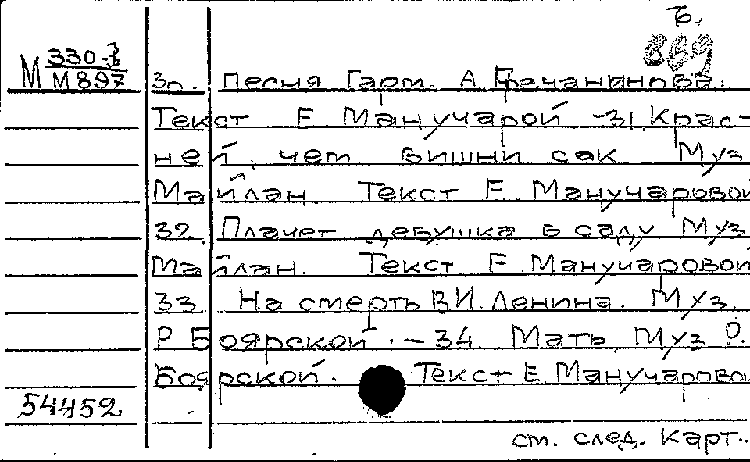 6.
869
М 330-3/М897
30. Песня Гарм. А. Гречанинова.
Текст Е. Манучарой -31. Крас-
ней, чем вишни сок Муз
Майлан. Текст Е. Манучаровой
32. Плачет девушка в саду Муз.
Майлан. Текст Е. Манучаровой
33 На смерть В.И. Ленина. Муз.
Р. Боярской. - 34. Мать. Муз. Р.
Боярской. Текст Е. Манучарово
54452
см. след. карт.